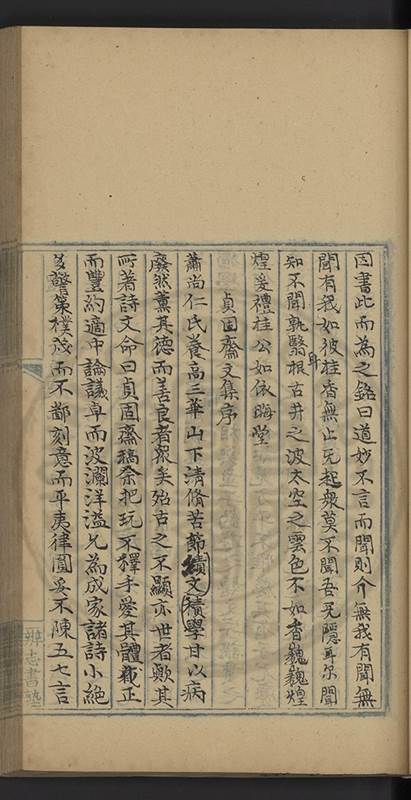 因書此而為之銘曰道妙不言而聞則介無我有聞無
聞有我如彼桂香無止无起衆莫不聞吾无隱耳尔聞
知不聞孰翳耳根古井之波太空之雲色不如香巍巍煌
煌爰禮桂公如依晦堂
貞固齋文集序
蕭尚仁氏養高三華山下清脩苦節績文積學甘以病
廢然薰其德而善良者衆矣殆古之不顯亦世者歟其
所著詩文命曰貞固齋稿余把玩不釋手愛其體裁正
而豐約適中論議卓而波瀾洋溢允為成家諸詩小絶
多警策樸茂而不鄙刻意而平夷律圓妥不陳五七言
雜志書塾